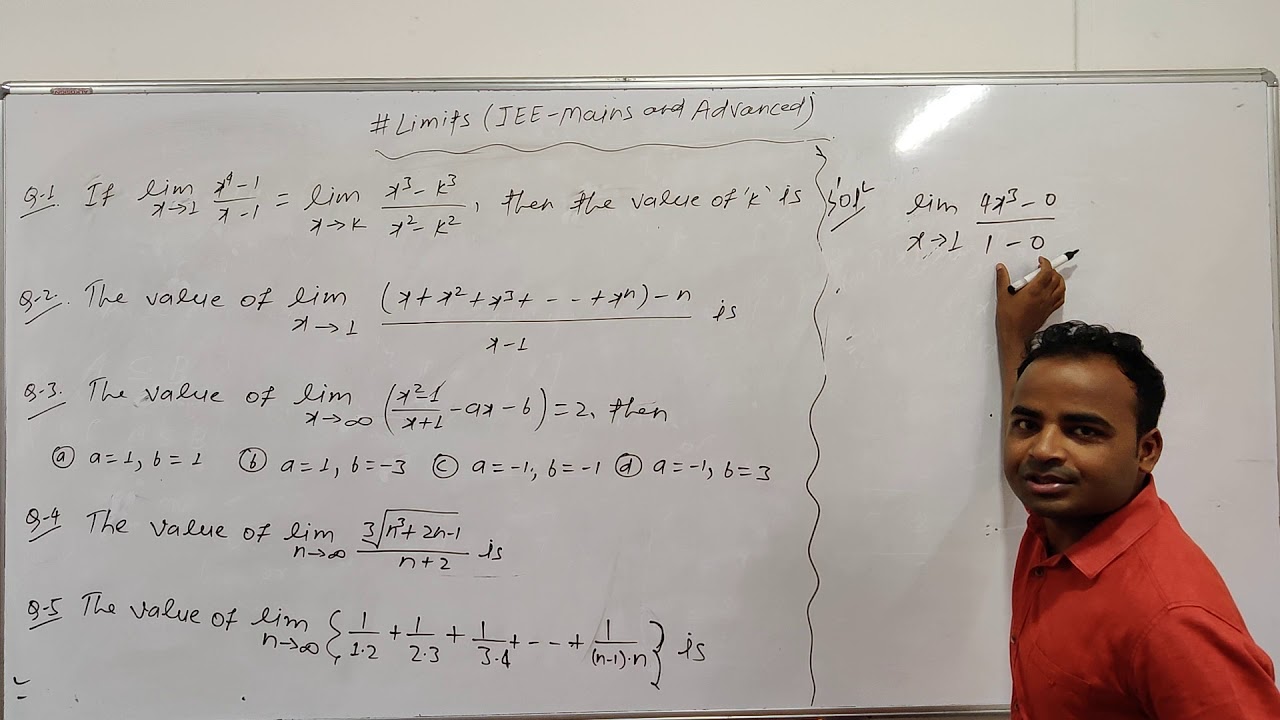 # Limits (JEE-Mains and Advanced)
Q-1. If lim x→1 (x⁴-1)/(x-1) = lim x→k (x³-k³)/(x²-k²), then the value of 'k' is
Q-2. The value of lim x→1 ((x+x²+x³+--+xⁿ)-n)/(x-1) is
Q-3. The value of lim x→∞ ((x²-1)/(x+1) -ax-b)=2, then
ⓐ a=1, b=1 ⓑ a=1, b=-3 ⓒ a=-1, b=-1 ⓓ a=-1, b=3
Q-4 The value of lim n→∞ ∛(n³+2n-1)/(n+2) is
Q-5 The value of lim n→∞ {1/(1·2) + 1/(2·3) + 1/(3·4) + -- + 1/((n-1)·n)} is
Solⁿ
lim x→1 (4x³-0)/(1-0)